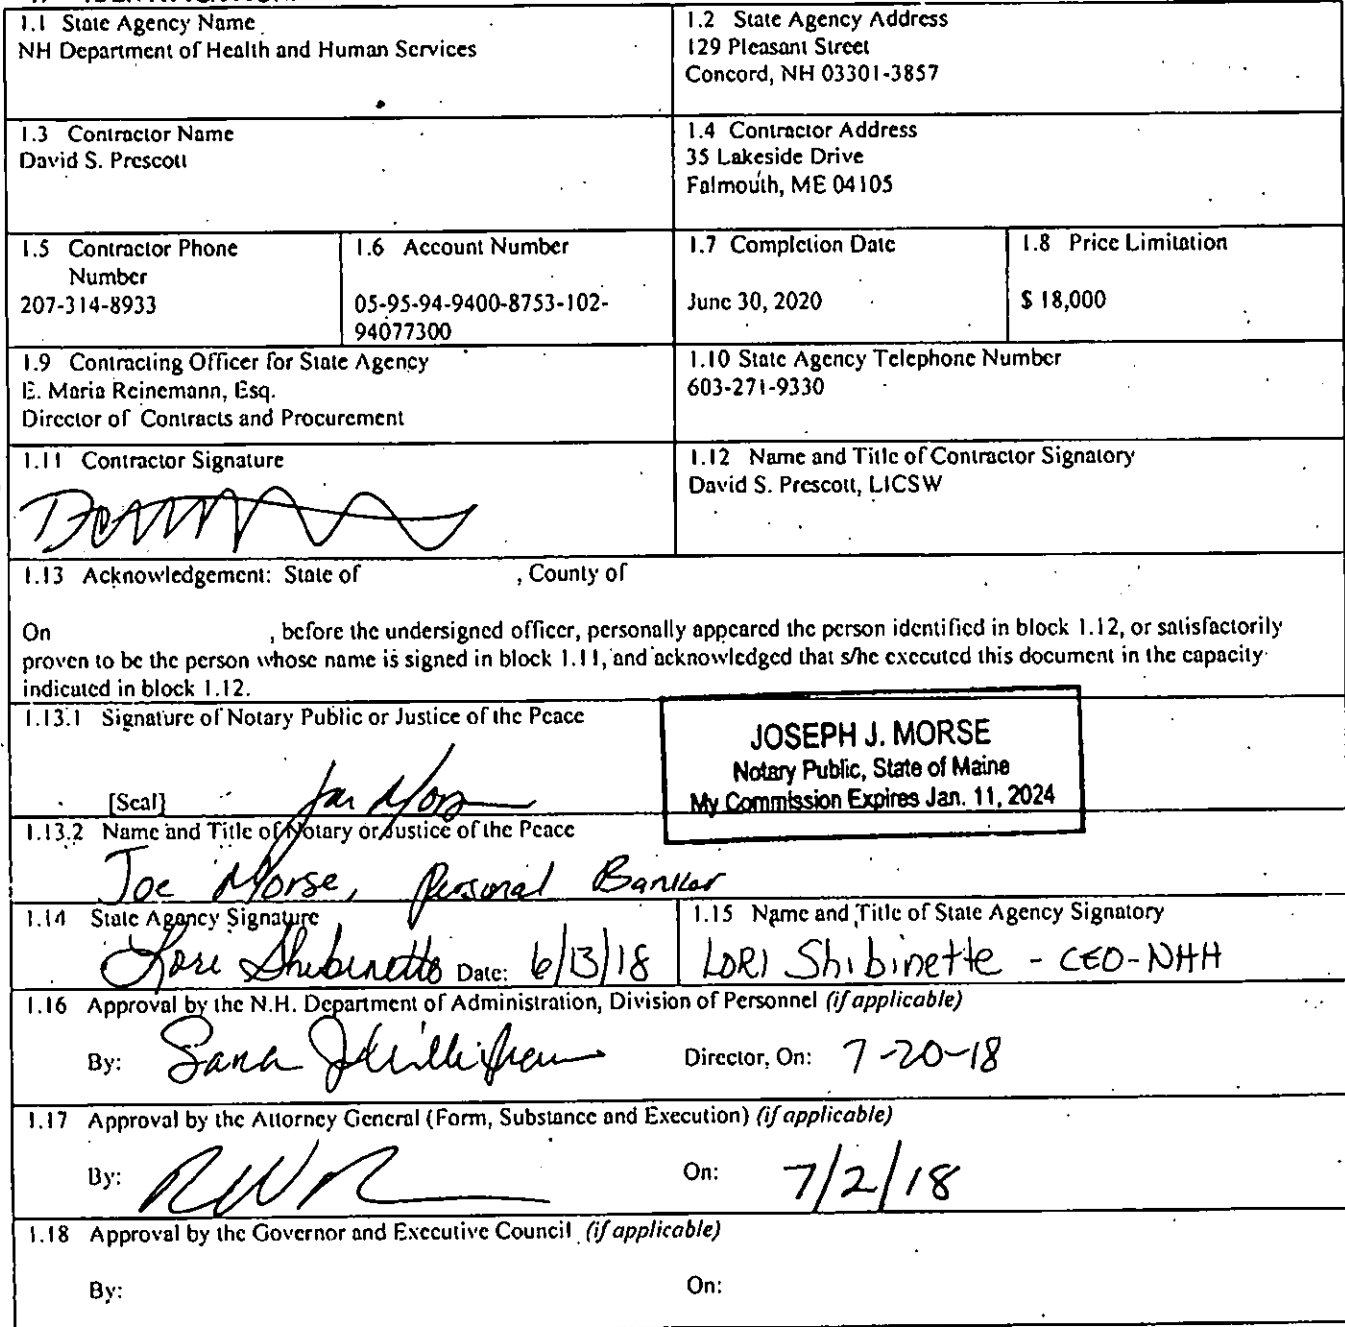 1.1 State Agency Name
NH Department of Health and Human Services
1.2 State Agency Address
129 Pleasant Street
Concord, NH 03301-3857
1.3 Contractor Name
David S. Prescott
1.4 Contractor Address
35 Lakeside Drive
Falmouth, ME 04105
1.5 Contractor Phone
Number
207-314-8933
1.6 Account Number
05-95-94-9400-8753-102-
94077300
1.7 Completion Date
June 30, 2020
1.8 Price Limitation
$ 18,000
1.9 Contracting Officer for State Agency
E. Maria Reinemann, Esq.
Director of Contracts and Procurement
1.10 State Agency Telephone Number
603-271-9330
1.11 Contractor Signature
1.12 Name and Title of Contractor Signatory
David S. Prescott, LICSW
1.13 Acknowledgement: State of , County of
On , before the undersigned officer, personally appeared the person identified in block 1.12, or satisfactorily
proven to be the person whose name is signed in block 1.11, and acknowledged that s/he executed this document in the capacity
indicated in block 1.12.
1.13.1 Signature of Notary Public or Justice of the Peace
[Seal]
JOSEPH J. MORSE
Notary Public, State of Maine
My Commission Expires Jan. 11, 2024
1.13.2 Name and Title of Notary or Justice of the Peace
Joe Morse, Personal Banker
1.14 State Agency Signature
Lori Shibinette Date: 6/13/18
1.15 Name and Title of State Agency Signatory
LORI Shibinette - CEO-NHH
1.16 Approval by the N.H. Department of Administration, Division of Personnel (if applicable)
By: Director, On: 7-20-18
1.17 Approval by the Attorney General (Form, Substance and Execution) (if applicable)
By: On: 7/2/18
1.18 Approval by the Governor and Executive Council (if applicable)
By: On: